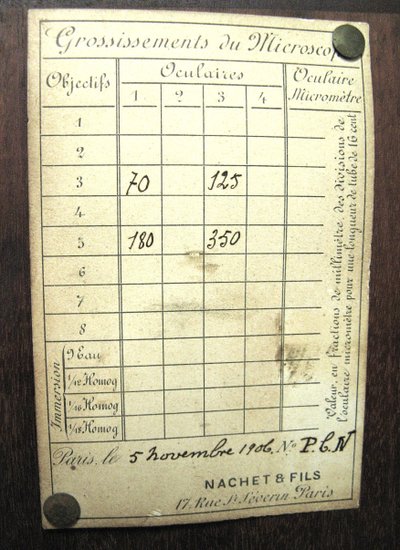 Grossissements du Microscop
Objectifs Oculaires Oculaire Micromètre
1 2 3 4
1
2
3 70 125
4
5 180 350
6
7
8
Immersion
9 Eau
1/12 Homog
1/16 Homog
1/18 Homog
Valeur, en fractions de millimètre, des divisions de
l'oculaire micromètre pour une longueur de tube de 16 cent
Paris, le 5 novembre 1906 No P.C.N
NACHET & FILS
17, Rue St Séverin, Paris